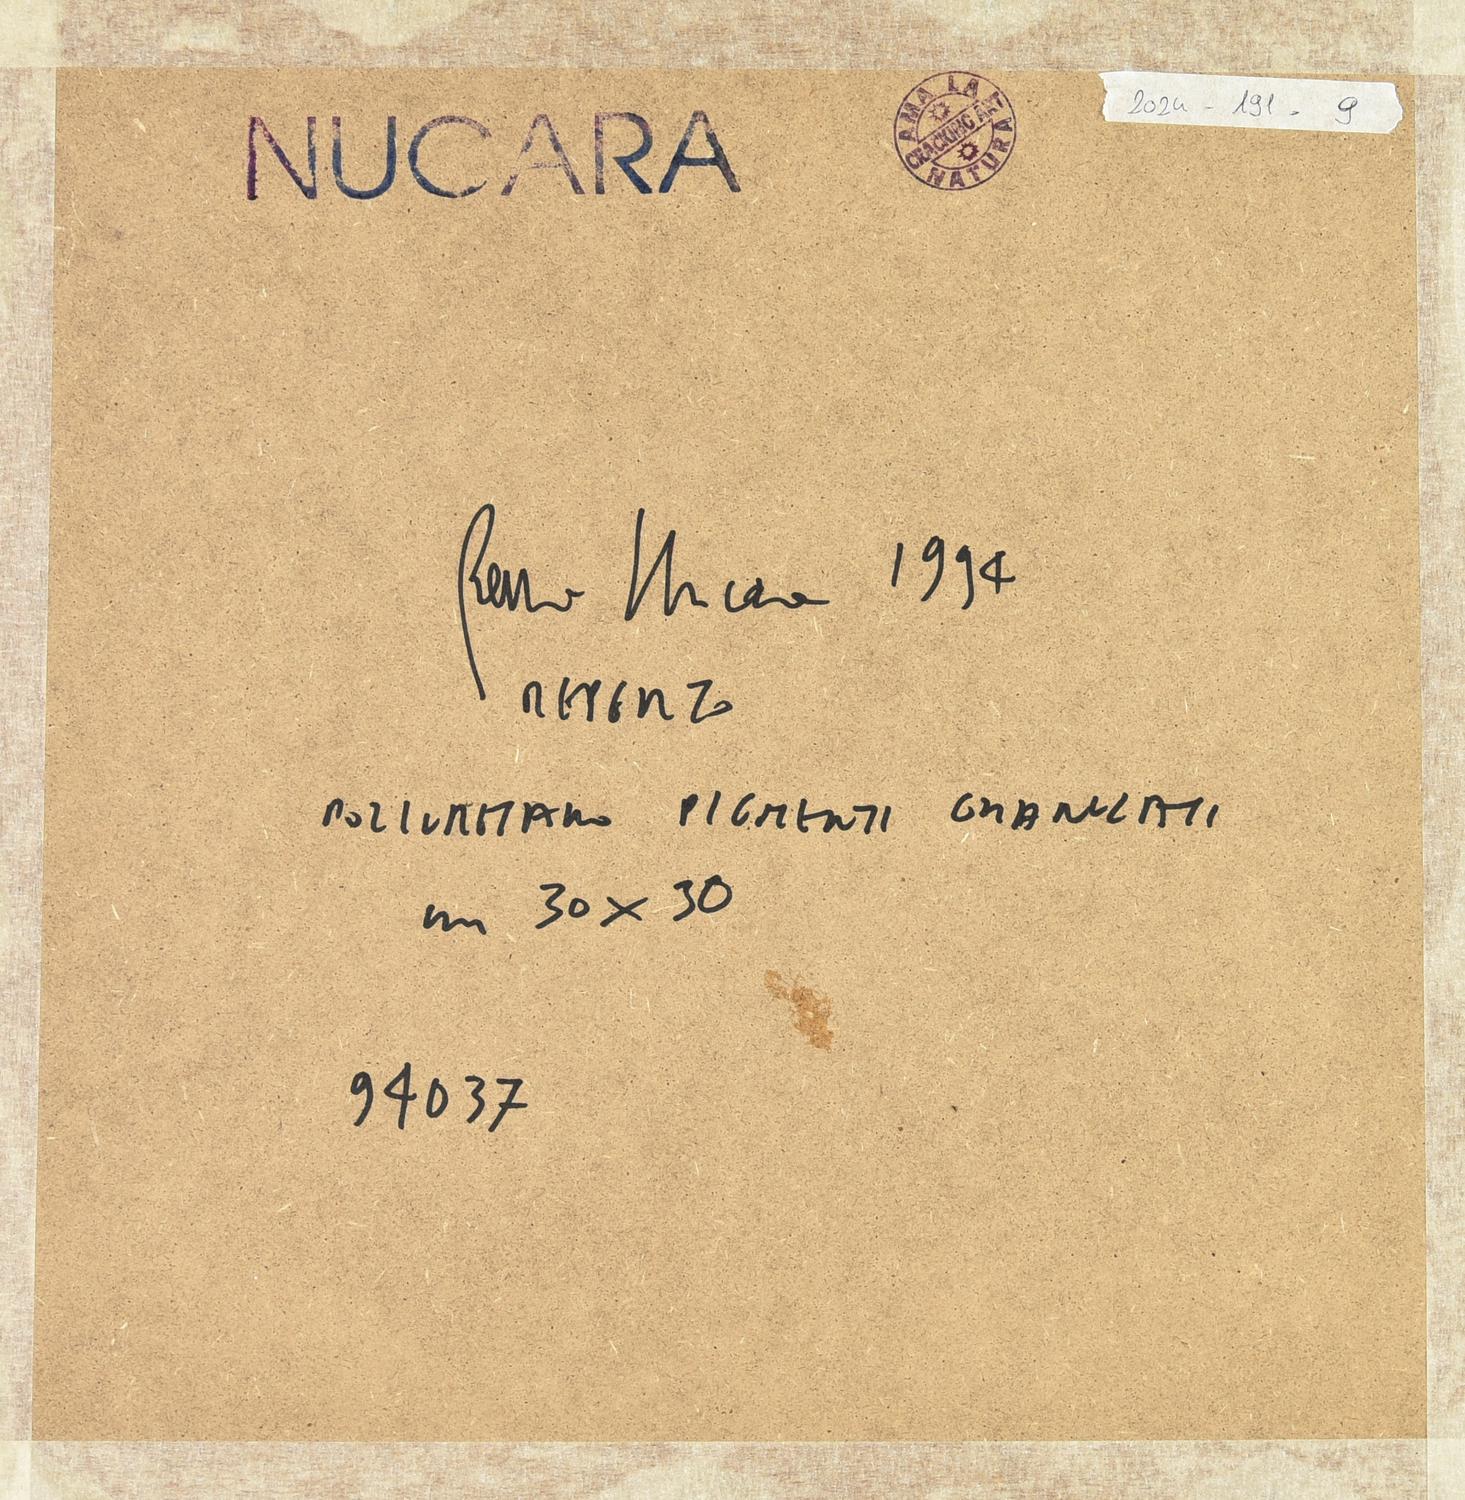 NUCARA
AMA LA NATURA
CRACKING ART
2024 - 191 - 9
Renzo Nucara 1994
REPERTO
POLIURETANO PIGMENTI GRANULATI
cm 30x30
94037